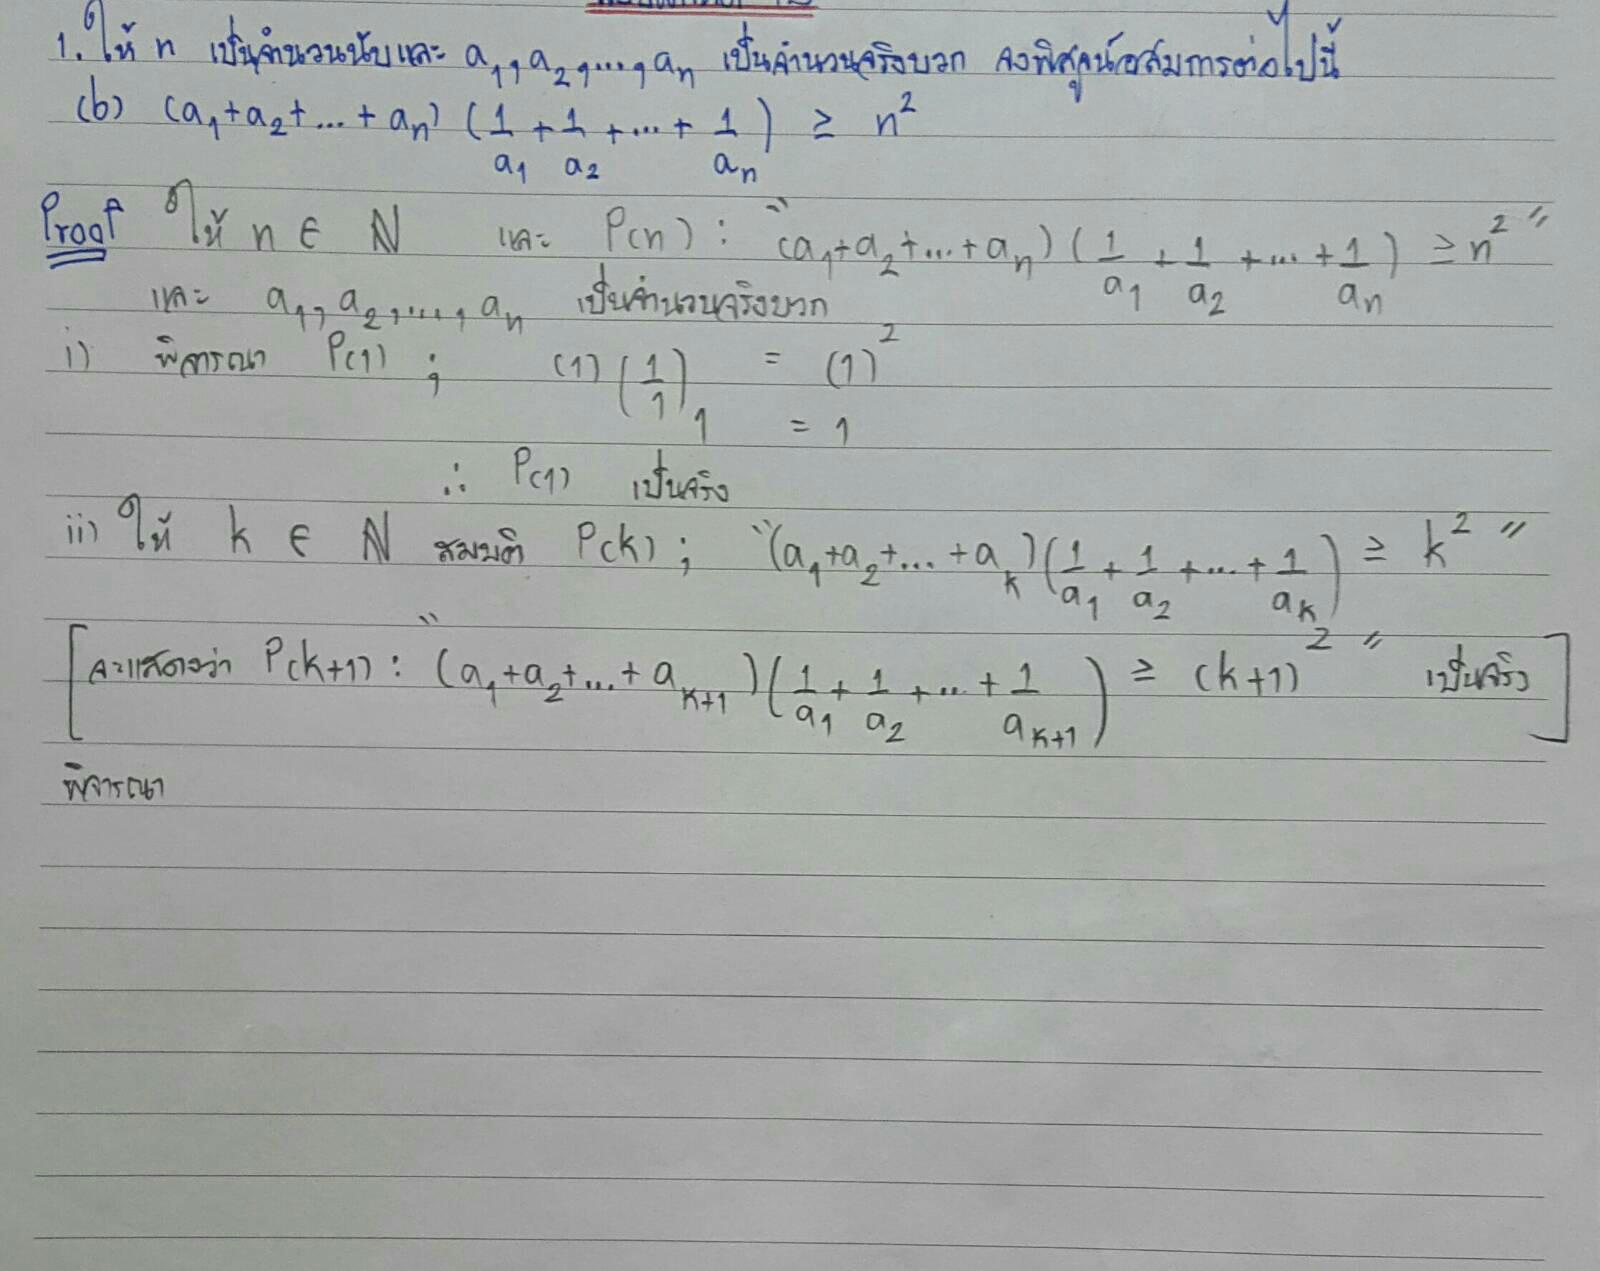 1. ให้ n เป็นจำนวนนับและ a₁, a₂, ..., aₙ เป็นจำนวนจริงบวก จงพิสูจน์อสมการต่อไปนี้
(b) (a₁+a₂+...+aₙ) (1/a₁ + 1/a₂ + ... + 1/aₙ) ≥ n²
Proof ให้ n ∈ ℕ และ P(n) : "(a₁+a₂+...+aₙ) (1/a₁ + 1/a₂ + ... + 1/aₙ) ≥ n²"
และ a₁, a₂, ..., aₙ เป็นจำนวนจริงบวก
i) พิจารณา P(1) ; (1) (1/1) = (1)²
1 = 1
∴ P(1) เป็นจริง
ii) ให้ k ∈ ℕ สมมติ P(k) ; "(a₁+a₂+...+aₖ)(1/a₁ + 1/a₂ + ... + 1/aₖ) ≥ k²"
[จะแสดงว่า P(k+1) : "(a₁+a₂+...+aₖ₊₁)(1/a₁ + 1/a₂ + ... + 1/aₖ₊₁) ≥ (k+1)²" เป็นจริง]
พิจารณา